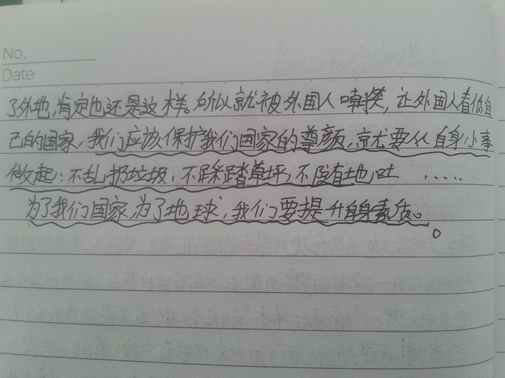 No.
Date
了外地,肯定也还是这样。所以就被外国人嘲笑,让外国人看低自
己的国家,我们应该保护我们国家的尊颜,就要从自身小事
做起:不乱扔垃圾,不踩踏草坪,不随地吐……
为了我们国家,为了地球,我们要提升自身素质。